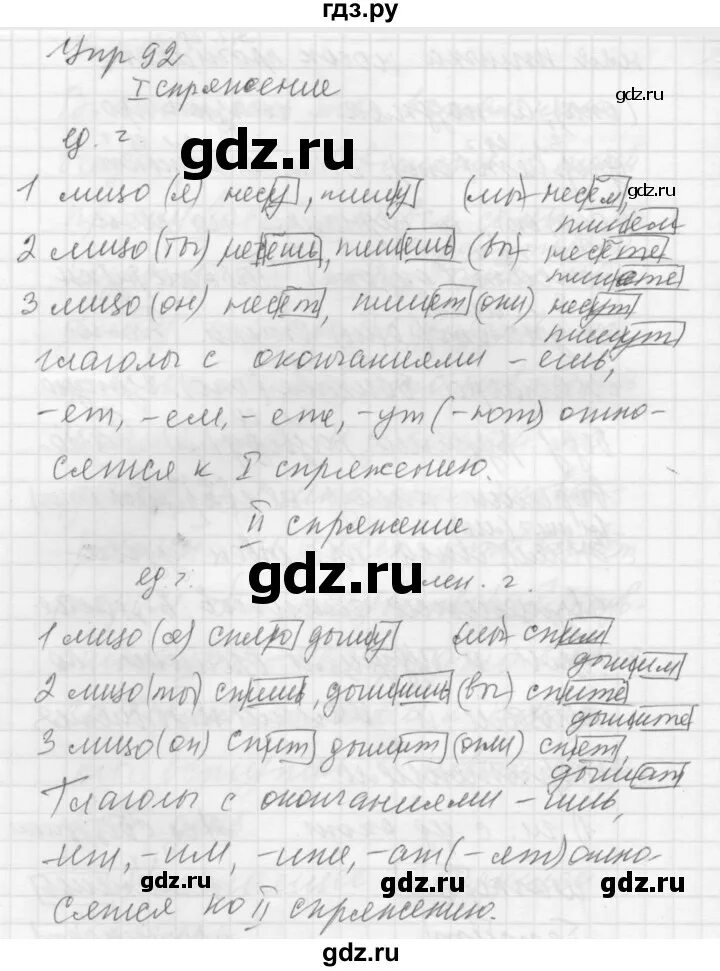 гдз.ру
Упр 92
I спряжение
gdz.ru
ед. ч.
gdz.ru
1 лицо (я) несу, пишу (мы) несём,
gdz.ru
пишем
2 лицо (ты) несёшь, пишешь (вы) несёте
пишете
3 лицо (он) несёт, пишет (они) несут
пишут
глаголы с окончаниями -ешь,
-ет, -ем, -ете, -ут (-ют) отно-
сятся к I спряжению.
II спряжение
gdz.ru
ед. ч. мн. ч.
1 лицо (я) сплю дышу (мы) спим
дышим
2 лицо (ты) спишь, дышишь (вы) спите
дышите
3 лицо (он) спит дышит (они) спят,
дышат
Глаголы с окончаниями -ишь,
-ит, -им, -ите, -ат (-ят) отно-
gdz.ru gdz.ru gdz.ru
сятся ко II спряжению.
gdz.ru